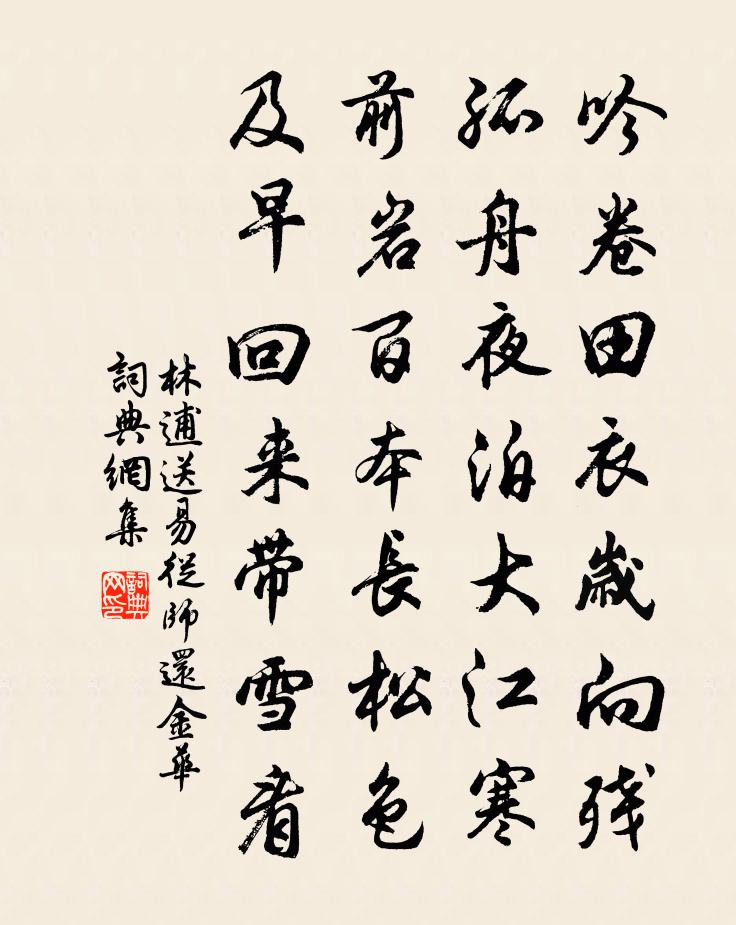 吟卷田衣歲向残
孤舟夜泊大江寒
前岩百本長松色
及早回来带雪看
林逋送易從師還金華
詞典網集
詞典网印